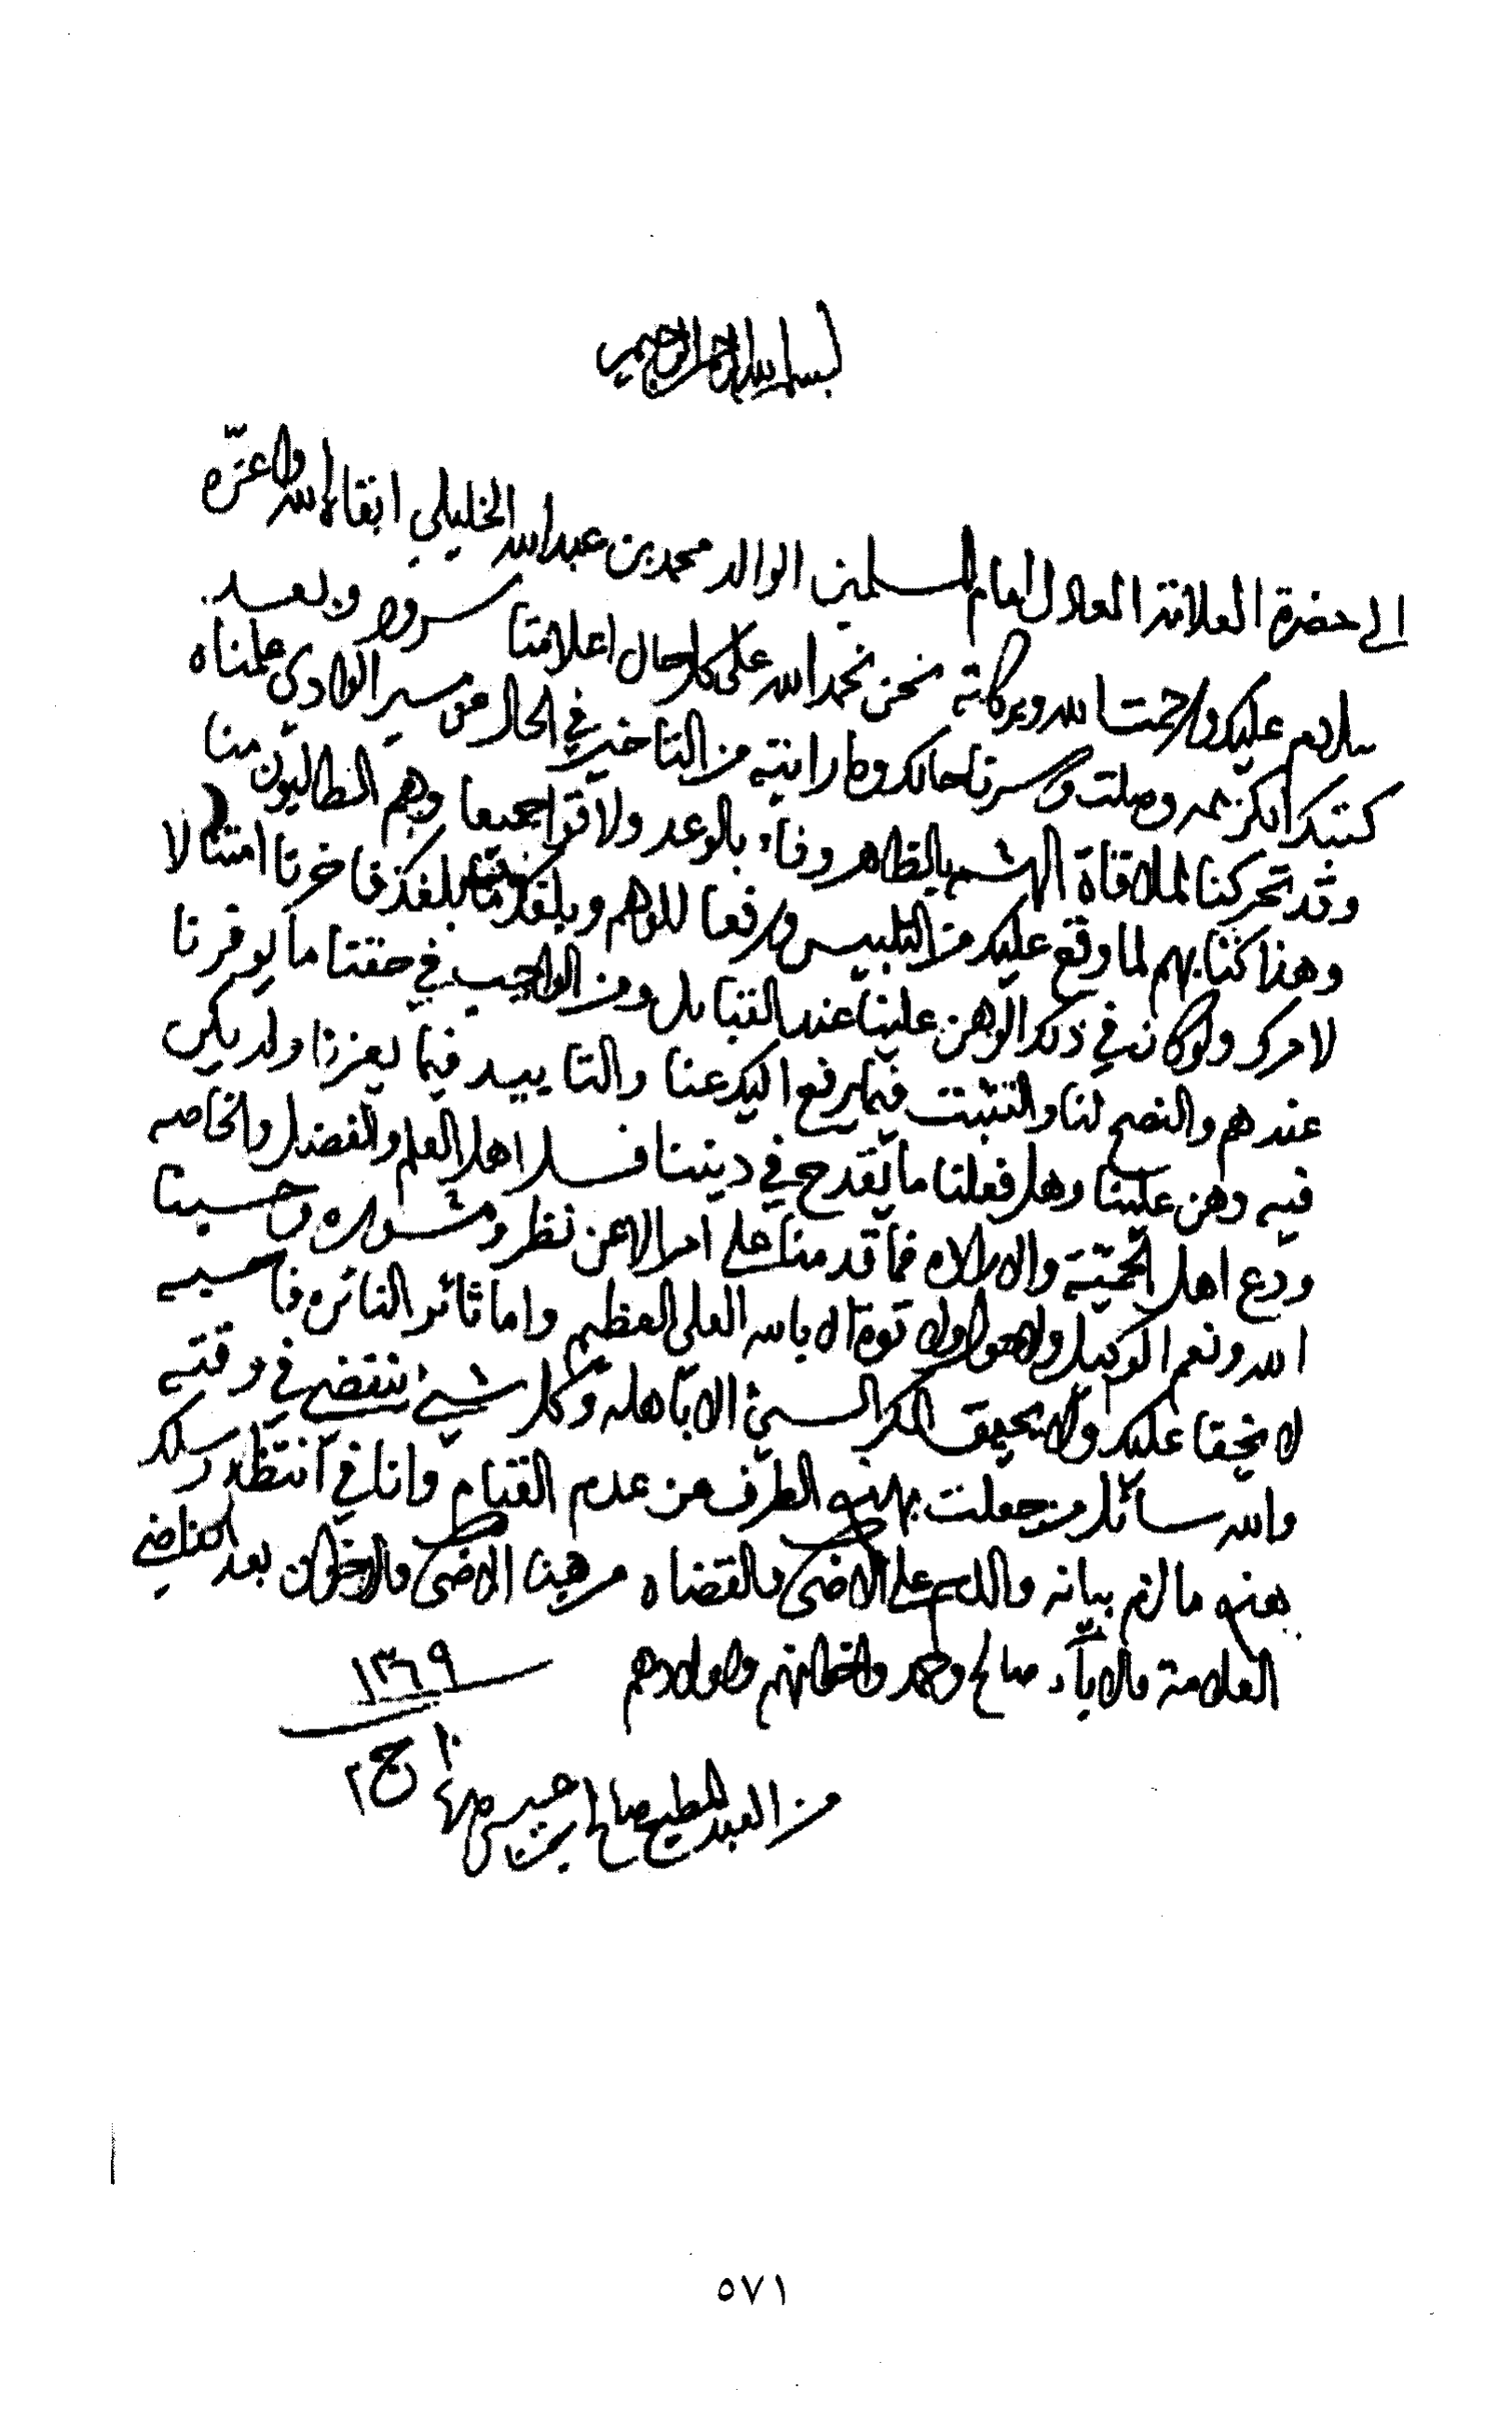 بسم الله الرحمن الرحيم
الى حضرة العلامة العادل امام المسلمين الوالد محمد بن عبدالله الخليلي ابقاه الله واعزه
سلام عليك ورحمت الله وبركاته نحن نحمد الله على كل حال اعلامنا سروره وبعد
كتبك الكريمه وصلت وسرنا حالك وما رايته من التاخير في الحال عن مسير الوادي علمناه
وقد تحركنا لملاقاة الهشم بالظاهر وفاء بالوعد ولاقوا جميعا وهم الطالبون منا
وهذا كتابهم لما وقع عليك من التلبيس ورفعا للوهم وبلغك ما بلغك فاخرنا امتثالا
لامرك ولو كان في ذلك الوهن علينا عند القبايل ومن الواجب في حقنا ما يوقرنا
عندهم والنصح لنا والتثبت فيما يرفع اليك عنا والتاييد فيما يعززنا ولم يكن
فيه وهن علينا وهل فعلنا ما يقدح في ديننا فسل اهل العلم والفضل والخاصه
ودع اهل الحمية فما قدمنا على امر الا عن نظر ومشوره وحسبنا
الله ونعم الوكيل ولا حول ولا قوة الا بالله العلي العظيم واما ثائر النائره فا
لا يخفا عليك ولا يحيق المكر السيئ الا باهله وكل شيئ ننتضي في وقته
والله سائل من جعلت الطرف عن عدم القيام وانا في انتظار رسلك
هذا ما لزم بيانه والسلام على الاخ والقضاه من هنا الاخ والاخوان بعد القاضي
العلامة والاباء صالح وحمد واخوانهم واولادهم
١٣٦٩
١٠ ج ٢
من العبد المطيع صالح بن عيسى
٥٧١